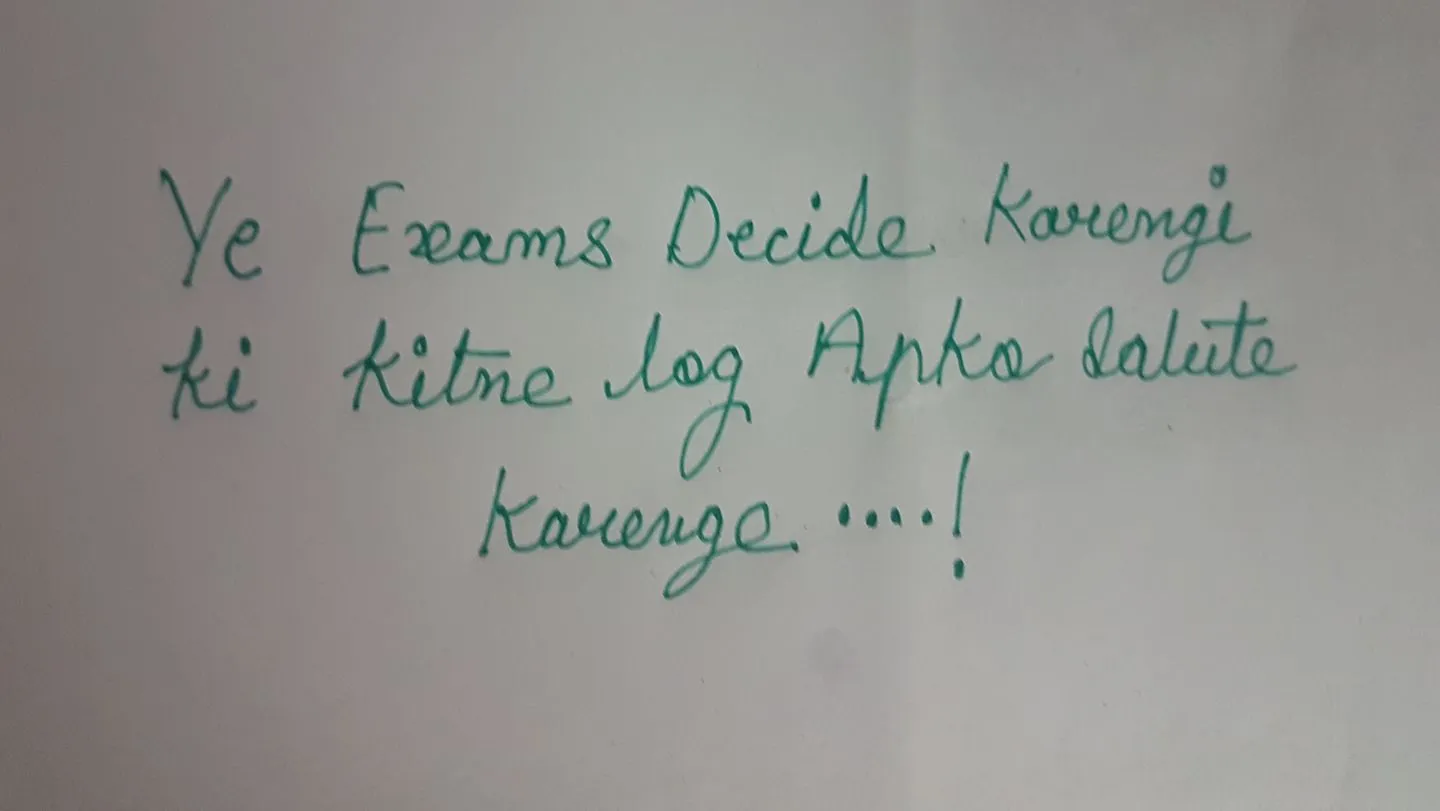 Ye Exams Decide Karengi
ki kitne log Apko Salute
Karenge.....!